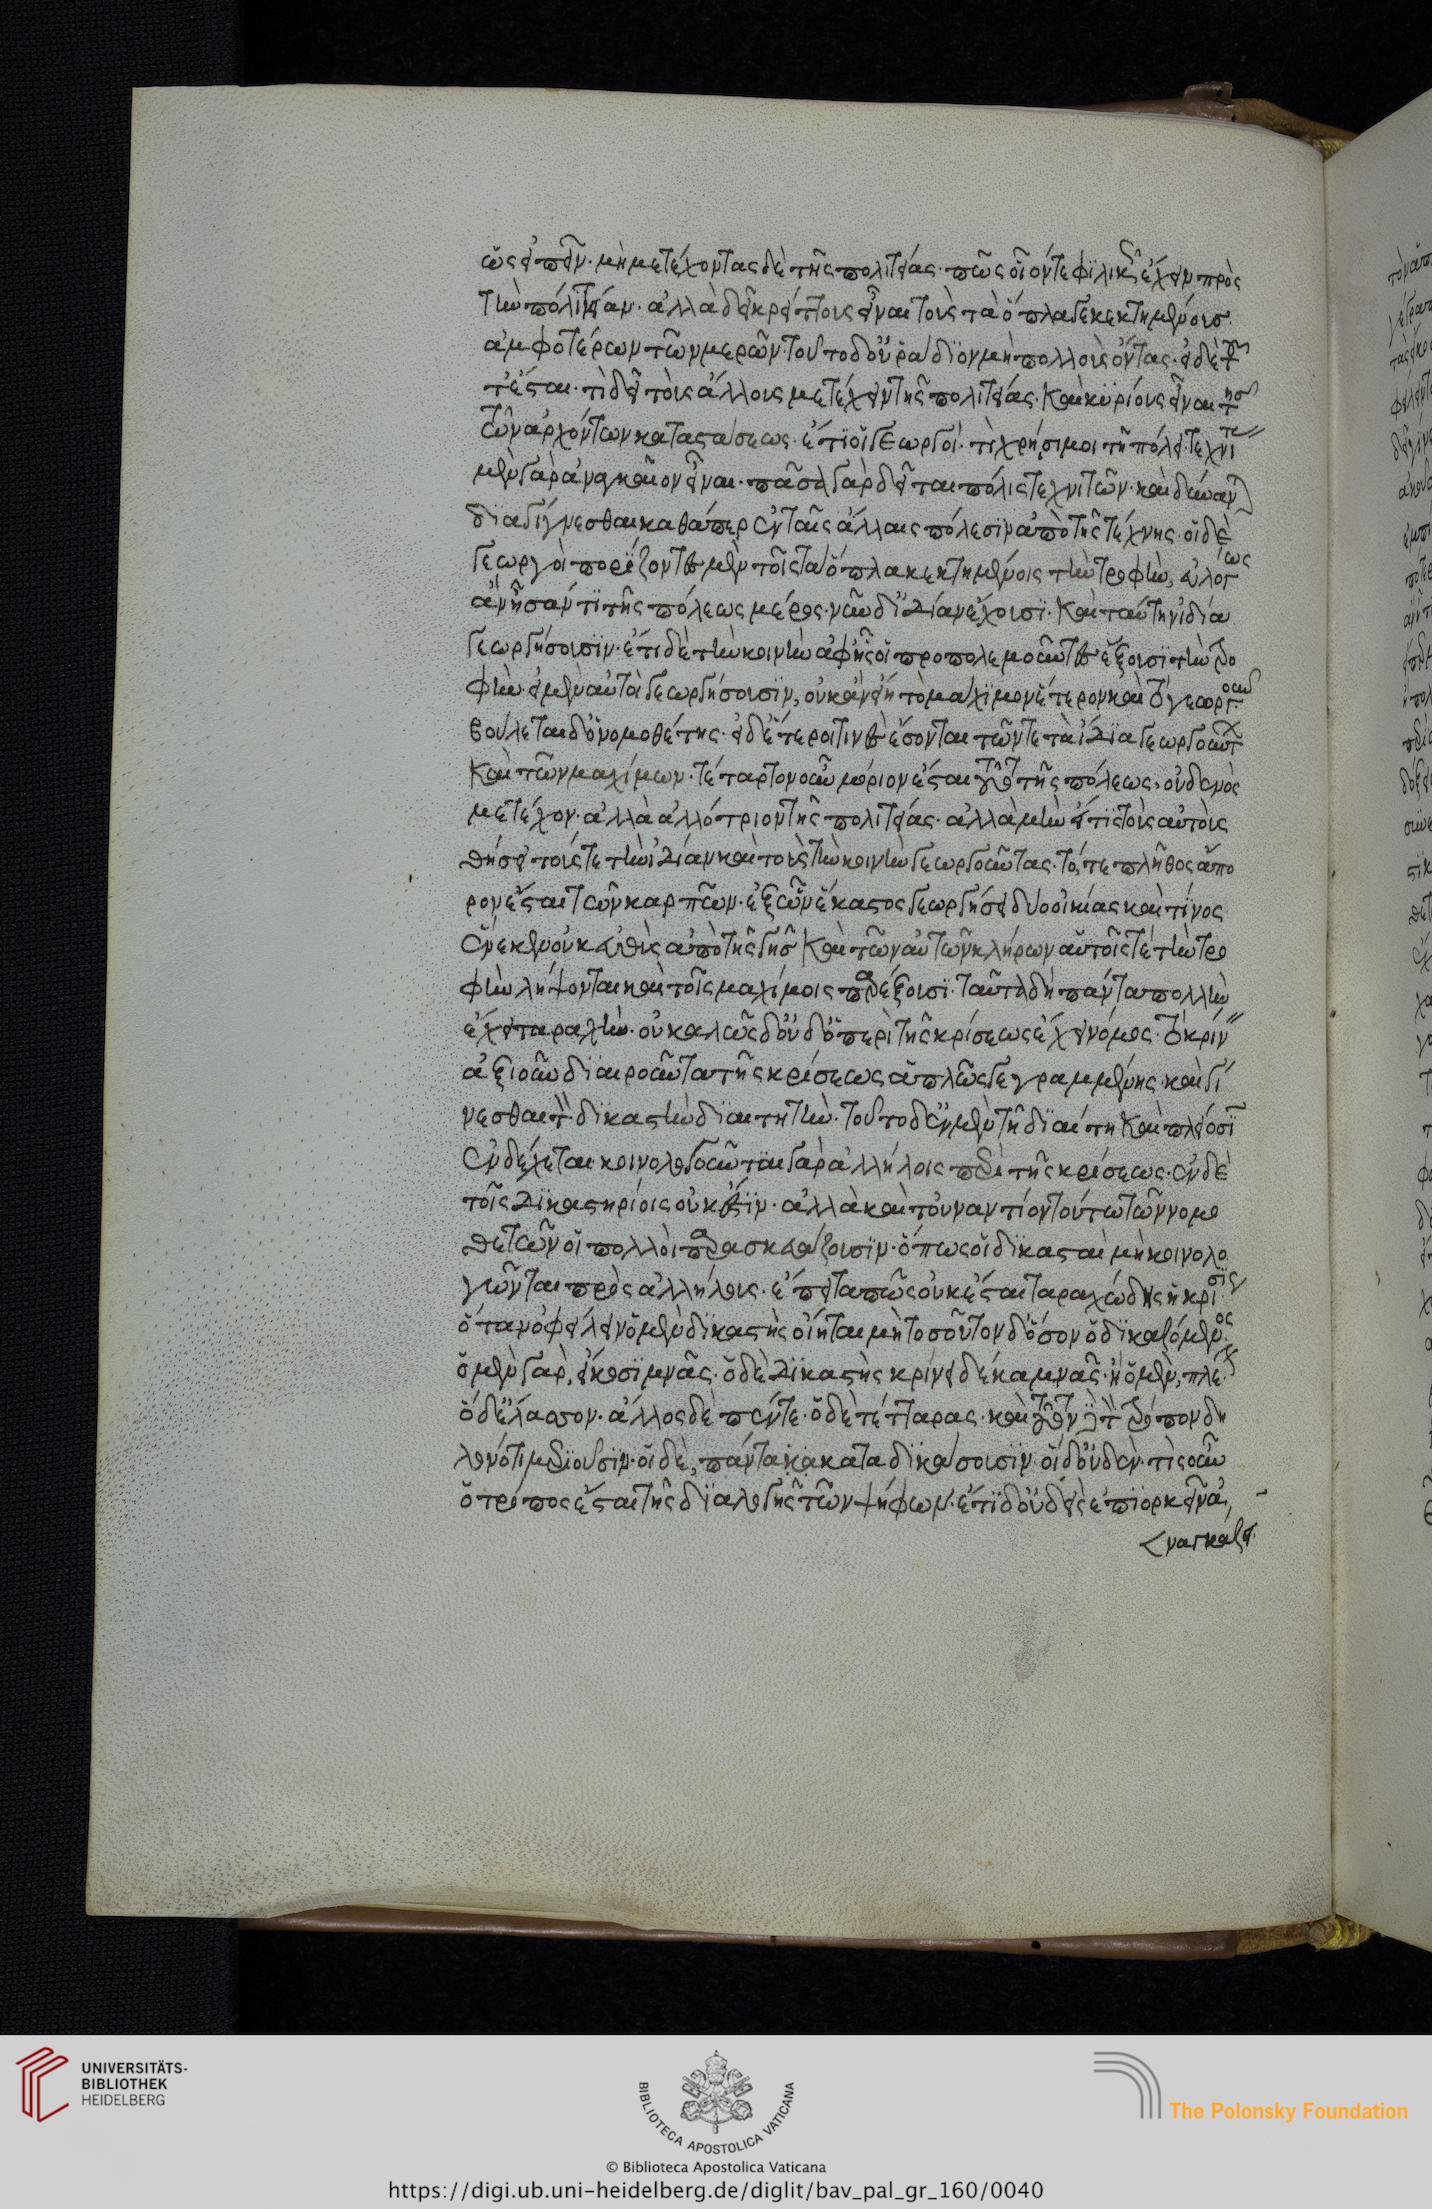 ὡς εἰπεῖν· μὴ μετέχοντας δὲ τῆς πολιτείας· πῶς οἷόν τε φιλικῶς ἔχειν πρὸς
τὴν πολιτείαν· ἀλλὰ δεῖ κρείττους εἶναι τοὺς τὰ ὅπλα γε κεκτημένους
ἀμφοτέρων τῶν μερῶν· τοῦτο δ' οὐ ῥάδιον μὴ πολλοὺς ὄντας· εἰ δὲ τοῦ
τ' ἔσται· τί δεῖ τοὺς ἄλλους μετέχειν τῆς πολιτείας· καὶ κυρίους εἶναι τῆς
τῶν ἀρχόντων καταστάσεως· ἔτι οἱ γεωργοὶ· τί χρήσιμοι τῇ πόλει· τεχνίτας
μὲν γὰρ ἀναγκαῖον εἶναι· πᾶσα γὰρ δεῖται πόλις τεχνιτῶν· καὶ δύναν
διαγίγνεσθαι καθάπερ ἐν ταῖς ἄλλαις πόλεσιν ἀπὸ τῆς τέχνης· οἱ δὲ
γεωργοὶ πορίζοντες μὲν τοῖς τὰ ὅπλα κεκτημένοις τὴν τροφὴν, εὐλόγως
ἂν ἦσάν τι τῆς πόλεως μέρος· νῦν δ' ἰδίαν ἔχουσι· καὶ ταύτην ἰδίᾳ
γεωργήσουσιν· ἔτι δὲ τὴν κοινὴν ἀφ' ἧς οἱ προπολεμοῦντες ἕξουσι τὴν τρο
φὴν· εἰ μὲν αὐτοὶ γεωργήσουσιν, οὐκ ἂν εἴη τὸ μάχιμον ἕτερον καὶ τὸ γεωργοῦν
βούλεται δ' ὁ νομοθέτης· εἰ δ' ἕτεροί τινες ἔσονται τῶν τε τὰ ἴδια γεωργούντων
καὶ τῶν μαχίμων· τέταρτον οὖν μόριον ἔσται τοῦτο τῆς πόλεως· οὐδενὸς
μετέχον· ἀλλὰ ἀλλότριον τῆς πολιτείας· ἀλλὰ μὴν εἴ τις τοὺς αὐτοὺς
θήσει τούς τε τὴν ἰδίαν καὶ τοὺς τὴν κοινὴν γεωργοῦντας· τό τε πλῆθος ἄπο
ρον ἔσται τῶν καρπῶν· ἐξ ὧν ἕκαστος γεωργήσει δύο οἰκίας καὶ τίνος
ἕνεκεν οὐκ εὐθὺς ἀπὸ τῆς γῆς καὶ τῶν αὐτῶν κλήρων αὑτοῖς τέ τὴν τρο
φὴν λήψονται καὶ τοῖς μαχίμοις παρέξουσι· ταῦτα δὴ πάντα πολλὴν
ἔχει ταραχὴν· οὐ καλῶς δ' οὐδ' ὁ περὶ τῆς κρίσεως ἔχει νόμος· τὸ κρίν
ἀξιοῦν διαιροῦντα τῆς κρίσεως ἁπλῶς γεγραμμένης· καὶ γί
νεσθαι τὸν δικαστὴν διαιτητὴν· τοῦτο δ' ἐν μὲν τῇ διαίτῃ καὶ πλείοσι
ἐνδέχεται κοινολογοῦνται γὰρ ἀλλήλοις περὶ τῆς κρίσεως· ἐν δὲ
τοῖς δικαστηρίοις οὐκ ἔστιν· ἀλλὰ καὶ τοὐναντίον τούτω τῶν νομο
θετῶν οἱ πολλοὶ παρασκευάζουσιν· ὅπως οἱ δικασταὶ μὴ κοινολο
γῶνται πρὸς ἀλλήλους· ἔπειτα πῶς οὐκ ἔσται ταραχώδης ἡ κρίσις
ὅταν ὀφείλειν ὁ μὲν δικαστὴς οἴηται μὴ τοσοῦτον δ' ὅσον ὁ δικαζόμενος
ὁ μὲν γὰρ, εἴκοσι μνᾶς· ὁ δὲ δικαστὴς κρίνει δέκα μνᾶς· ἢ ὁ μὲν, πλέ
ὁ δ' ἔλασσον· ἄλλος δὲ πέντε· ὁ δὲ τέτταρας· καὶ τοῦτον δὴ τὸν τρόπον δῆ
λον ὅτι μεριοῦσιν· οἱ δὲ, πάντα καταδικάσουσιν· οἱ δ' οὐδέν· τίς οὖν
ὁ τρόπος ἔσται τῆς διαλογῆς τῶν ψήφων· ἔτι δ' οὐδεὶς ἐπιορκεῖν ἀ
ναγκάζει
UNIVERSITÄTS-
BIBLIOTHEK
HEIDELBERG
BIBLIOTECA APOSTOLICA VATICANA
The Polonsky Foundation
© Biblioteca Apostolica Vaticana
https://digi.ub.uni-heidelberg.de/diglit/bav_pal_gr_160/0040